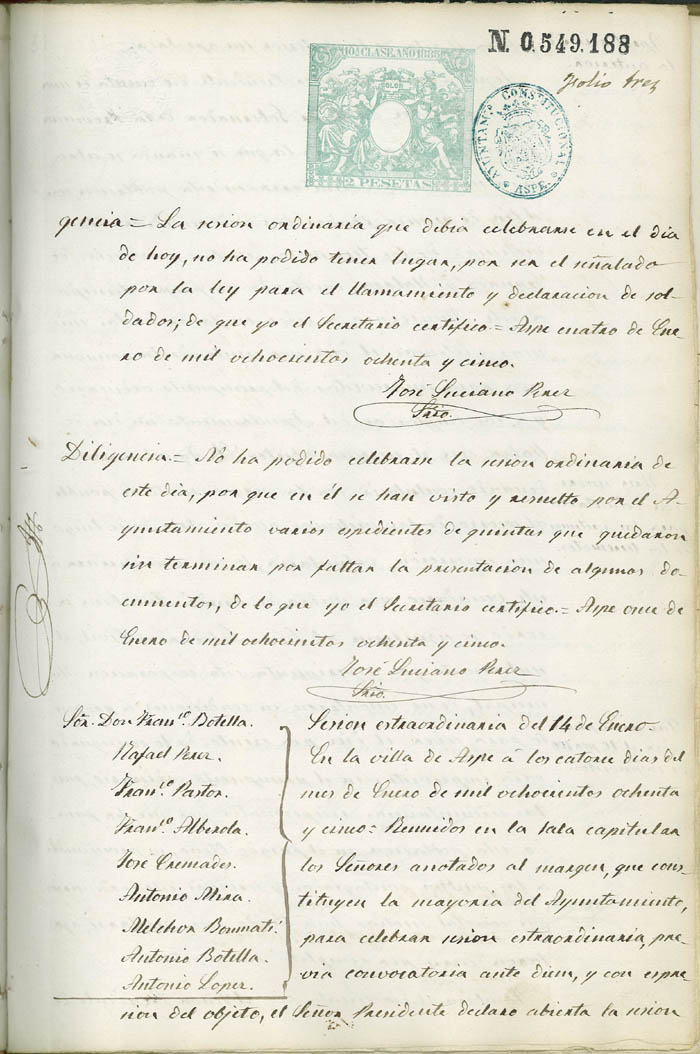 N. 0.549.188
Folio tres
10ª CLASE. AÑO 1885
2 PESETAS
AYUNTAMᵗᵒ CONSTITUCIONAL
* ASPE *
gencia = La sesion ordinaria que debia celebrarse en el dia
de hoy, no ha podido tener lugar, por ser el señalado
por la ley para el llamamiento y declaracion de sol-
dados; de que yo el Secretario certifico = Aspe cuatro de Ene-
ro de mil ochocientos ochenta y cinco.
José Luciano Perez
Srio.
Diligencia = No ha podido celebrarse la sesion ordinaria de
este dia, por que en él se han visto y resuelto por el A-
yuntamiento varios espedientes de quintas que quedaron
sin terminar por faltar la presentacion de algunos do-
cumentos; de lo que yo el Secretario certifico = Aspe once de
Enero de mil ochocientos ochenta y cinco.
José Luciano Perez
Srio.
Sór. Don Franᶜᵒ Botella.
Rafael Perez.
Franᶜᵒ Pastor.
Franᶜᵒ Alberola.
José Cremades.
Antonio Mira.
Melchor Bonmatí.
Antonio Botella.
Antonio Lopez.
Sesion estraordinaria del 14 de Enero.
En la villa de Aspe á los catorce dias del
mes de Enero de mil ochocientos ochenta
y cinco = Reunidos en la sala capitular
los Señores anotados al margen, que cons-
tituyen la mayoria del Ayuntamiento,
para celebrar sesion estraordinaria, pre-
via convocatoria ante diem, y con espre-
sion del objeto, el Señor Presidente declaro abierta la sesion